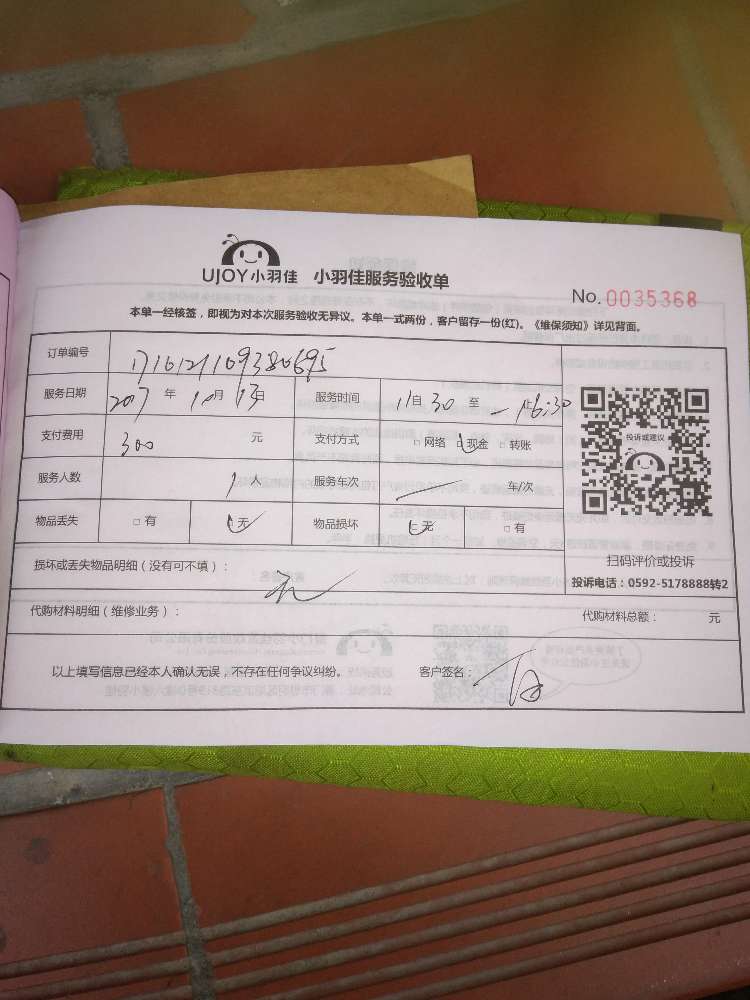 UJOY小羽佳 小羽佳服务验收单
No. 0035368
本单一经核签，即视为对本次服务验收无异议。本单一式两份，客户留存一份(红)。《维保须知》详见背面。
订单编号
服务日期 2017 年 10月 13日 服务时间 11自30 至 16:30止
支付费用 300 元 支付方式 □ 网络 □ 现金 □ 转账
投诉或建议
服务人数 1人 服务车次 车/次
物品丢失 □ 有 □ 无 物品损坏 □ 无 □ 有
扫码评价或投诉
损坏或丢失物品明细（没有可不填）： 无
投诉电话：0592-5178888转2
代购材料明细（维修业务）： 代购材料总额： 元
以上填写信息已经本人确认无误，不存在任何争议纠纷。 客户签名：